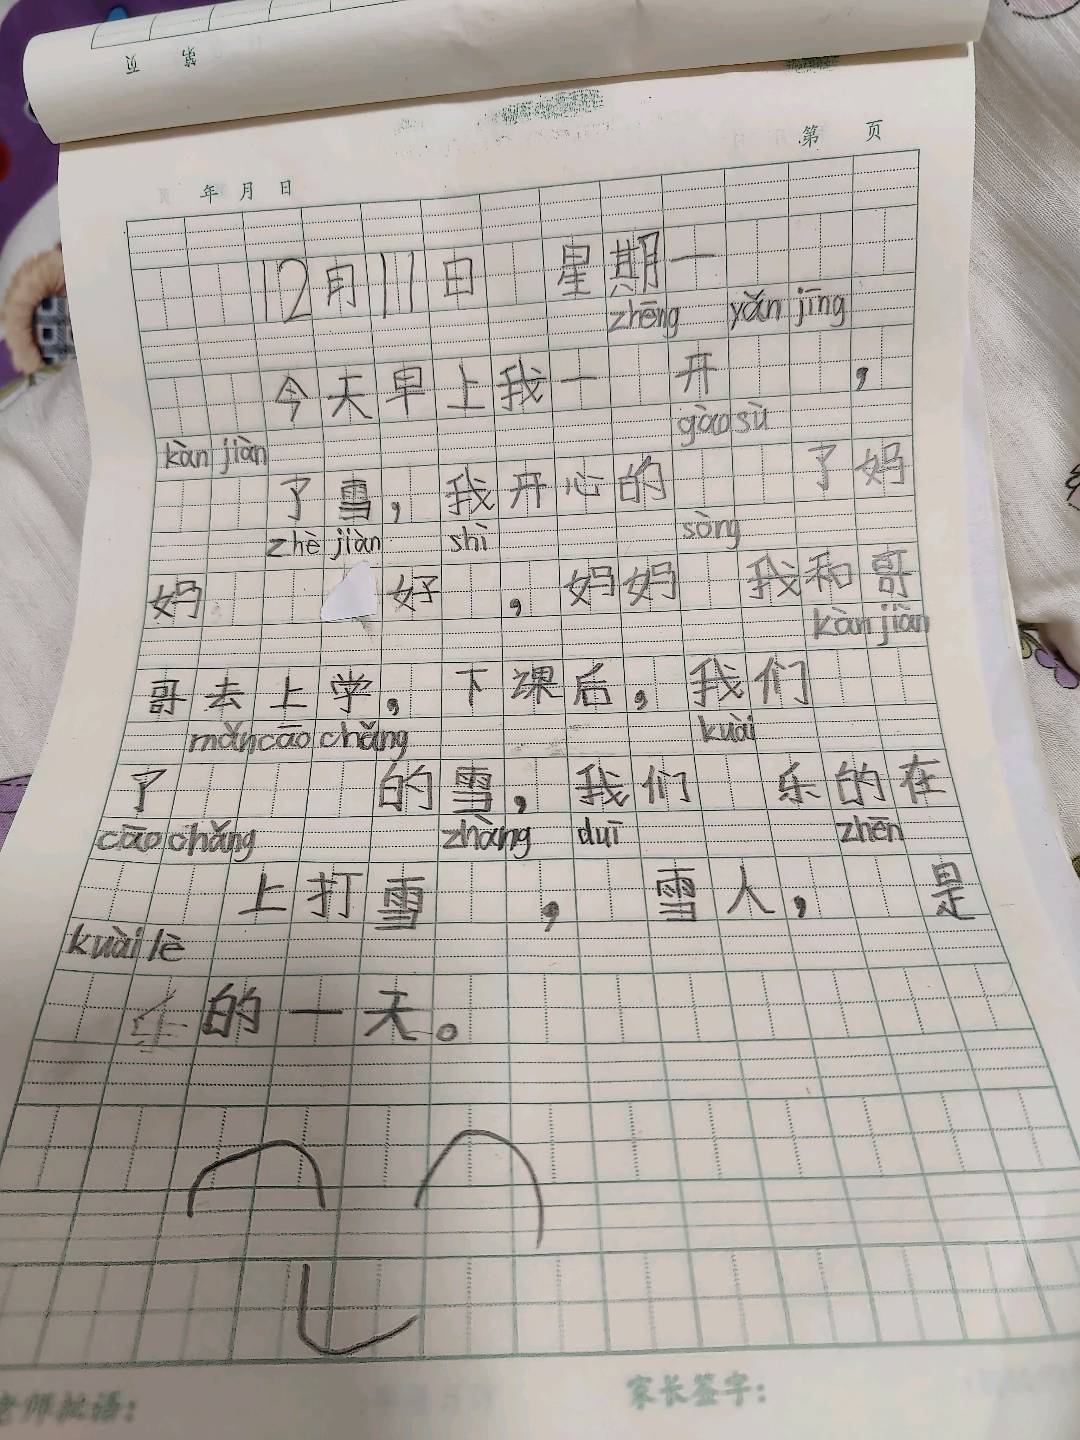 第 页
年 月 日
第 页
12月11日 星期一
zhēng yǎn jīng
今天早上我一 开 ，
kàn jiàn gào sù
了雪，我开心的 了妈
zhè jiàn shì sòng
妈 好 ，妈妈 我和哥
kàn jiàn
哥去上学，下课后，我们
mǎn cāo chǎng kuài
了 的雪，我们 乐的在
cāo chǎng zhàng duī zhēn
上打雪 ， 雪人， 是
kuài lè
的一天。
老师批语：
家长签字：